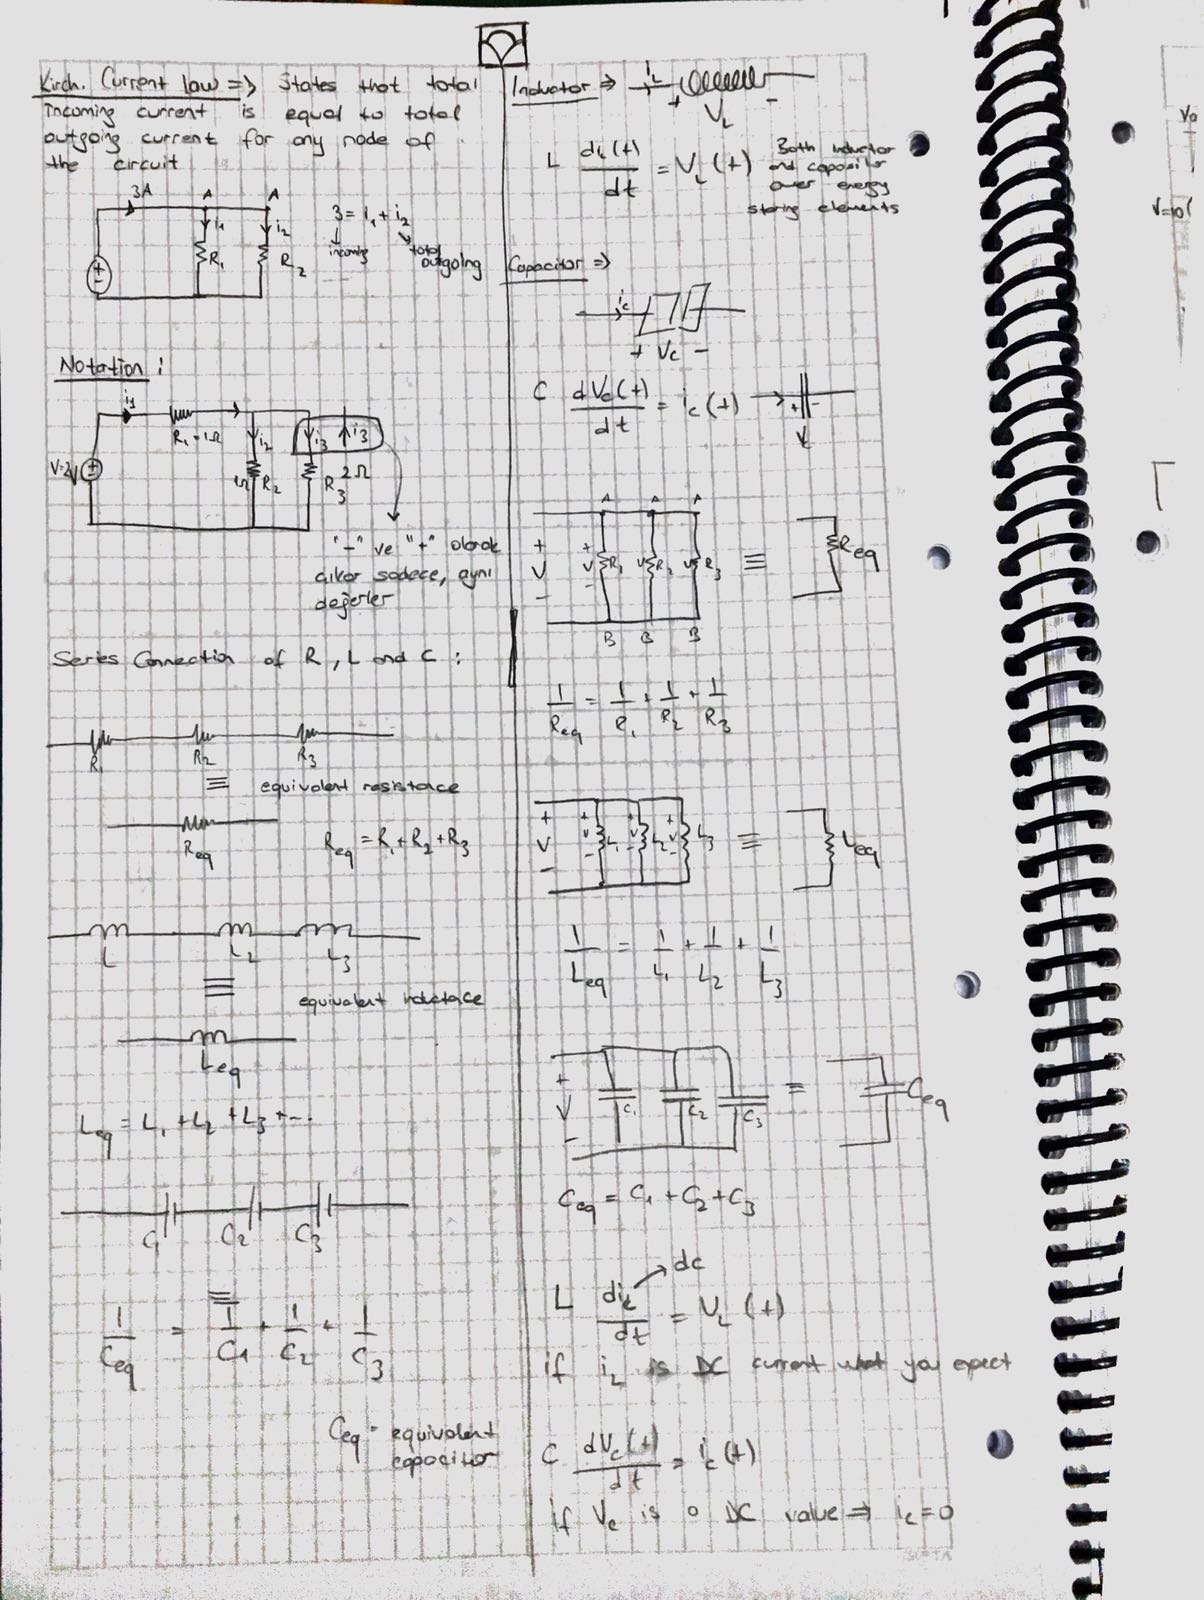 Kirch. Current law => States that total
incoming current is equal to total
outgoing current for any node of
the circuit
3A A A
i1 i2
R1 R2
3 = i1 + i2
incoming total
outgoing
Notation :
i1
R1 = 1Ω
i2 i3 i3
V=2V
1Ω R2 R3 2Ω
"-" ve "+" olarak
çıkar sadece, aynı
değerler
Series Connection of R, L and C :
R1 R2 R3
≡ equivalent resistace
Req
Req = R1 + R2 + R3
L L2 L3
≡ equivalent inductace
Leq
Leq = L1 + L2 + L3 + ...
C1 C2 C3
≡
1/Ceq = 1/C1 + 1/C2 + 1/C3
Ceq = equivalent
capacitor
Inductor => iL
+ VL -
L diL(t)/dt = VL(t)
Both inductor
and capacitor
over energy
storing elements
Capacitor =>
ic
+ Vc -
C dVc(t)/dt = ic(t)
+ -
A A A
+ V - + V - R1 V R2 V R3 ≡ Req
B B B
1/Req = 1/R1 + 1/R2 + 1/R3
+ V - + V - L1 + V - L2 + V - L3 ≡ Leq
1/Leq = 1/L1 + 1/L2 + 1/L3
+ V - C1 C2 C3 ≡ Ceq
Ceq = C1 + C2 + C3
dc
L diL/dt = VL(t)
if iL is DC current what you expect
C dVc(t)/dt = ic(t)
if Vc is a DC value => ic = 0